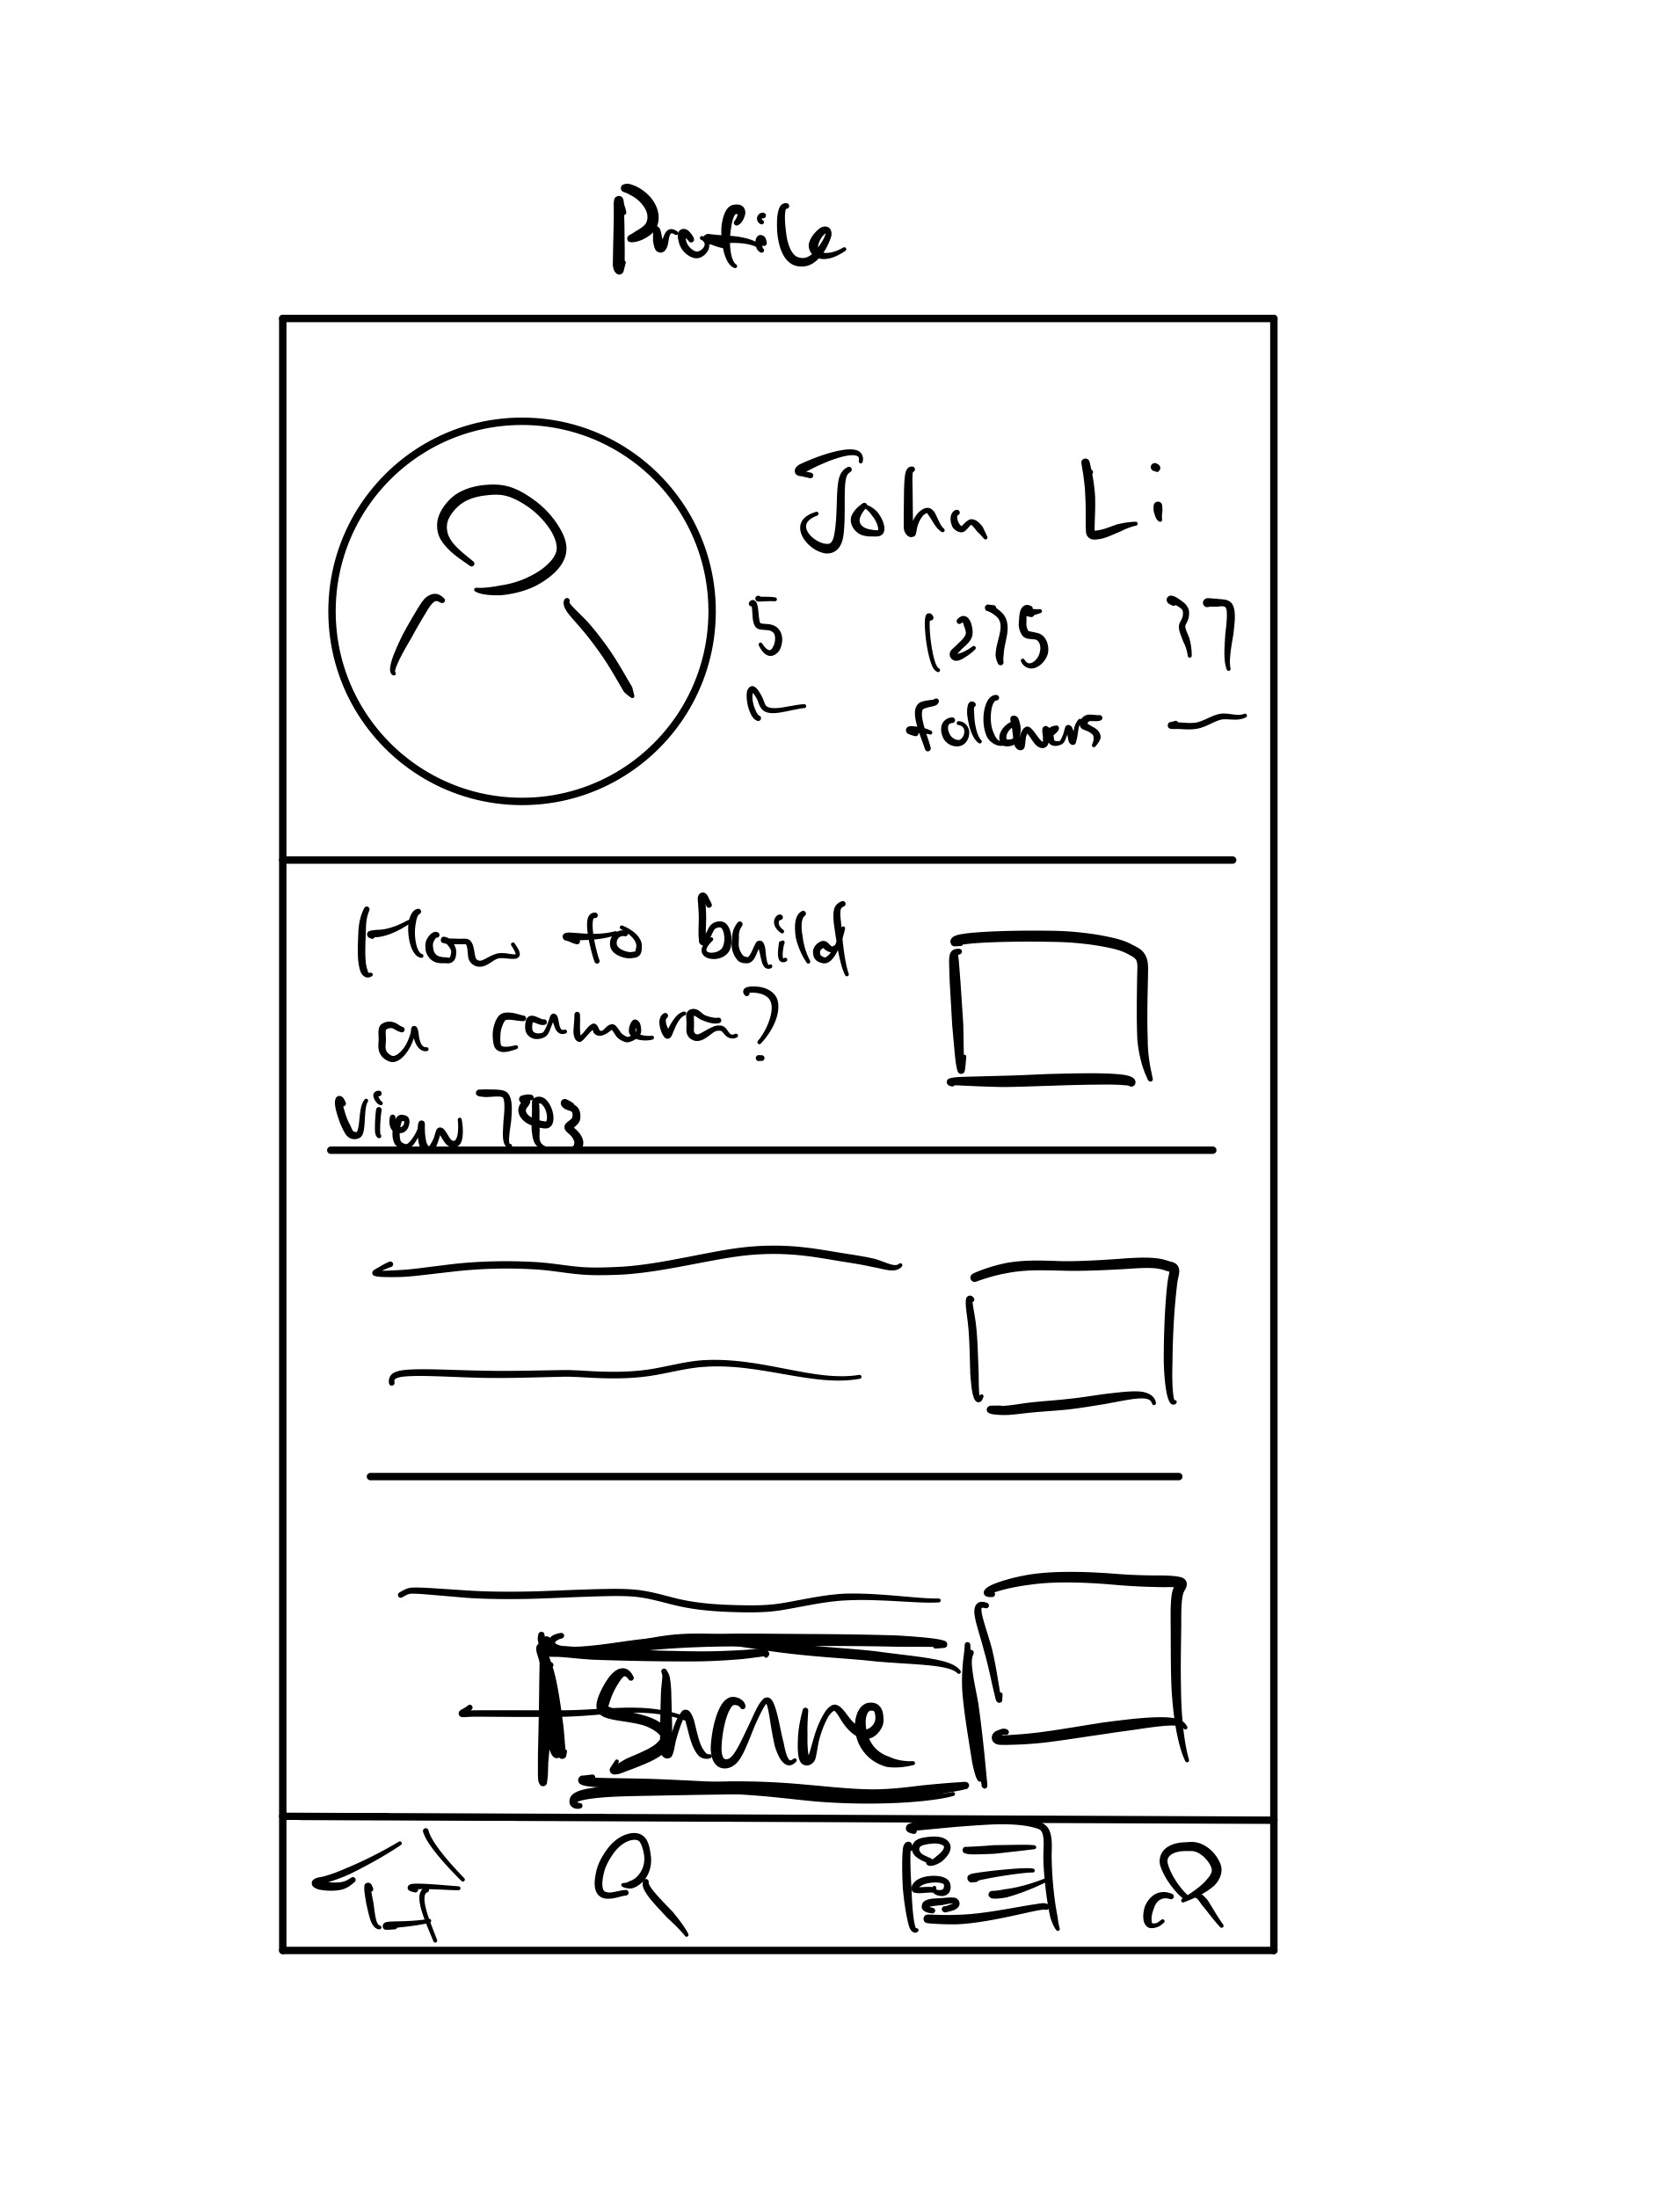 Profile
John Li
5 1275 77
followers
How to build
a camera?
View 783
Share